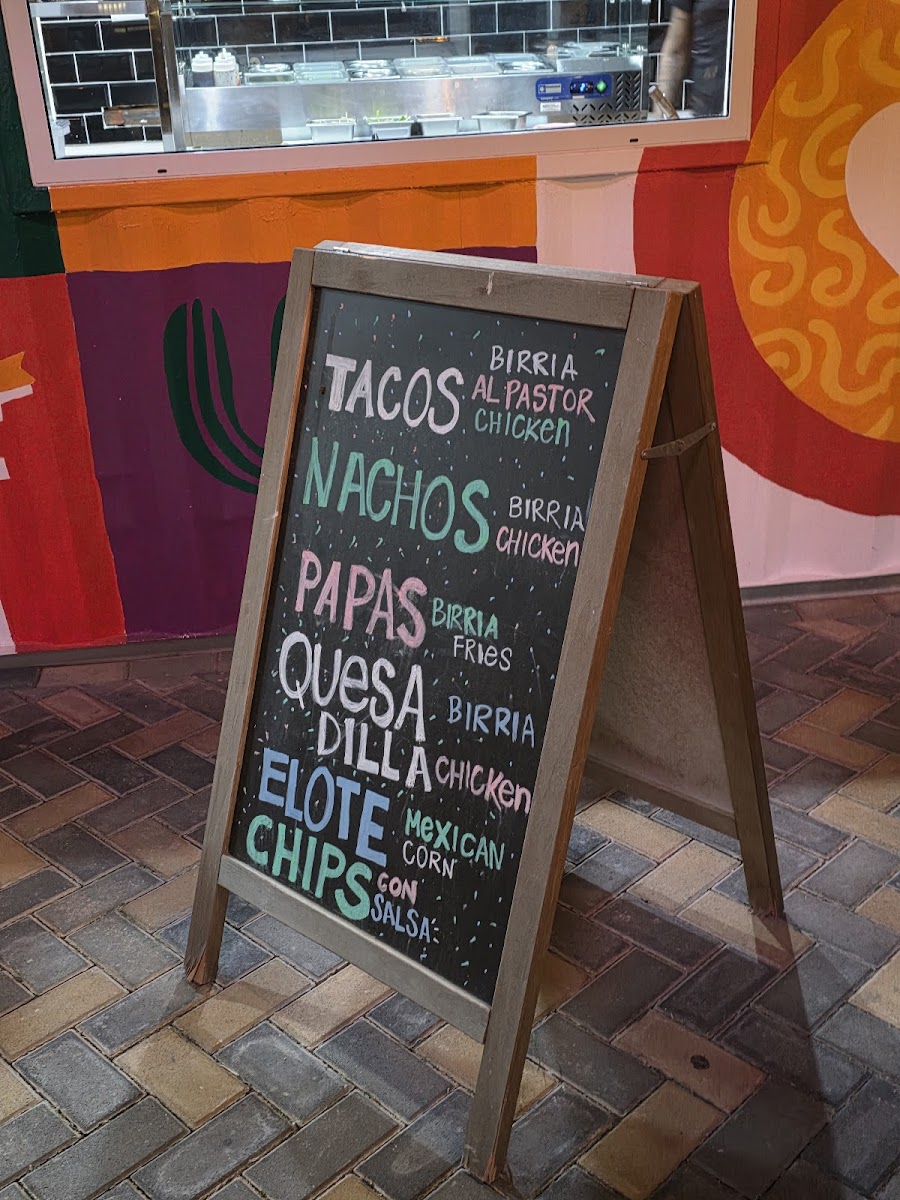 TACOS
BIRRIA
AL PASTOR
CHICKEN
NACHOS
BIRRIA
CHICKEN
PAPAS
BIRRIA
FRIES
QUESA
DILLA
BIRRIA
CHICKEN
ELOTE
MEXICAN
CORN
CHIPS
CON
SALSA